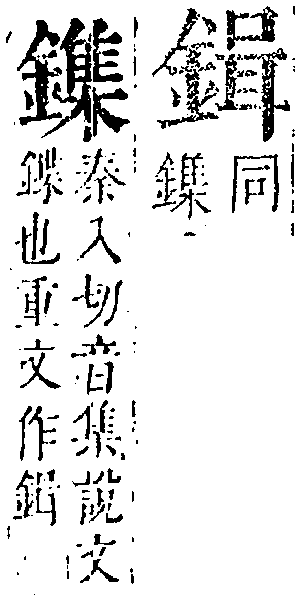 鍓
同
鏶
鏶
秦入切音集說文
鍱也重文作鍓